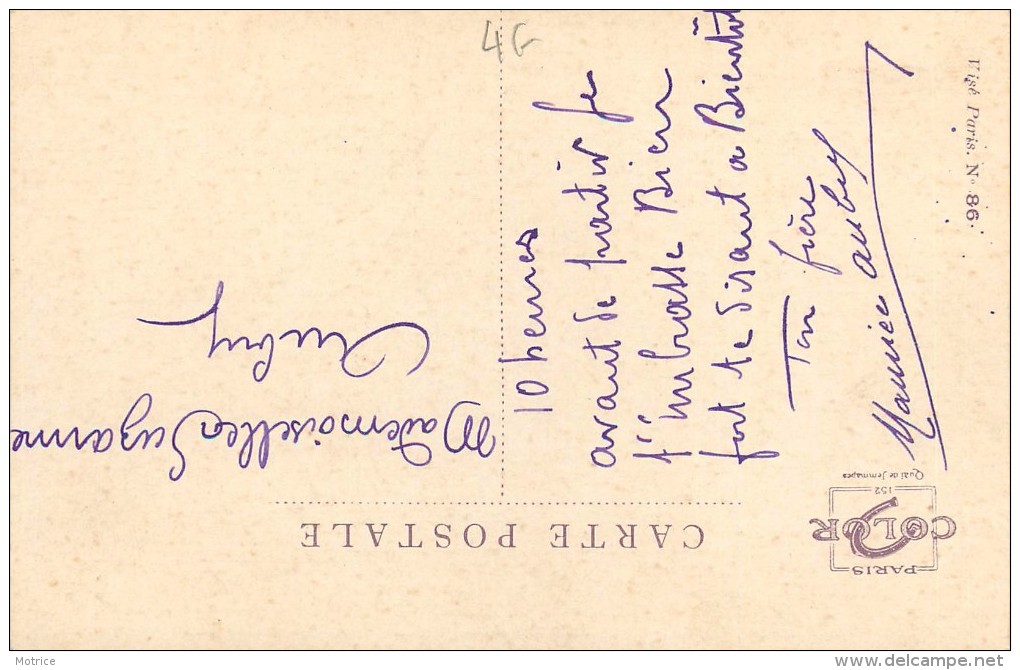 CARTE POSTALE
Mademoiselle Suzanne
Aubry
10 heures
avant de partir je
t'embrasse Bien
fort te disant a Bientôt
Ton frère
Maurice Aubry
4G
Visé Paris. N° 86
PARIS
COLOR
152
Quai de Jemmapes
Motrice
www.delcampe.net